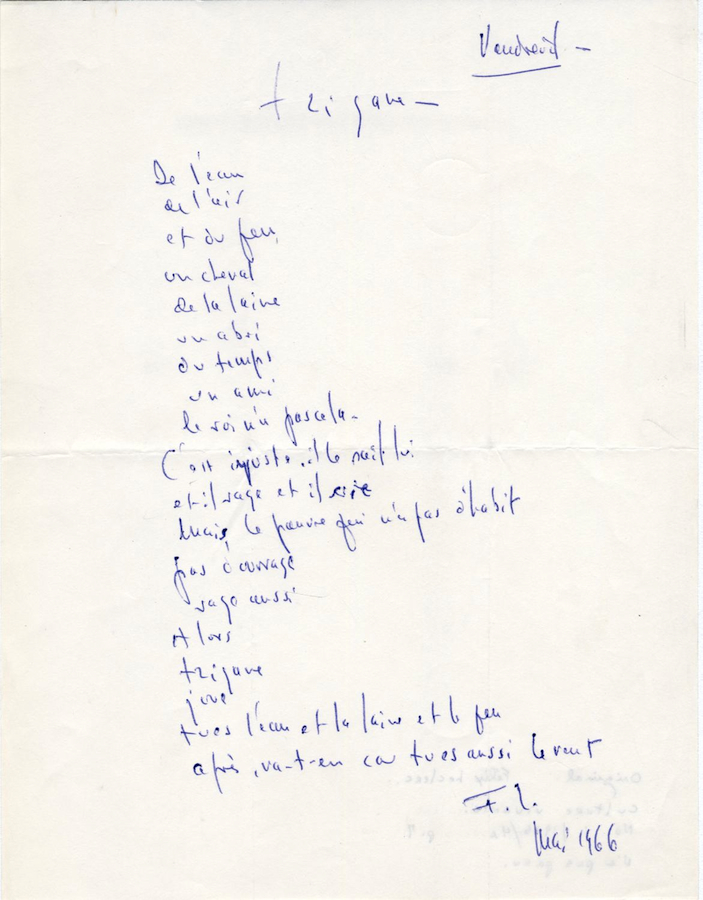 Vaudreuil –
tzigane –
De l'eau
de l'air
et du feu,
un cheval
de la laine
un abri
du temps
un ami
le roi n'a pas cela –
C'est injuste, il le sait lui
et il rage et il crie
Mais, le pauvre qui n'a pas d'habit
pas d'ouvrage
rage aussi
Alors
tzigane
joue
tu es l'eau et la laine et le feu
après, va-t-en car tu es aussi le vent
F. L.
Mai 1966